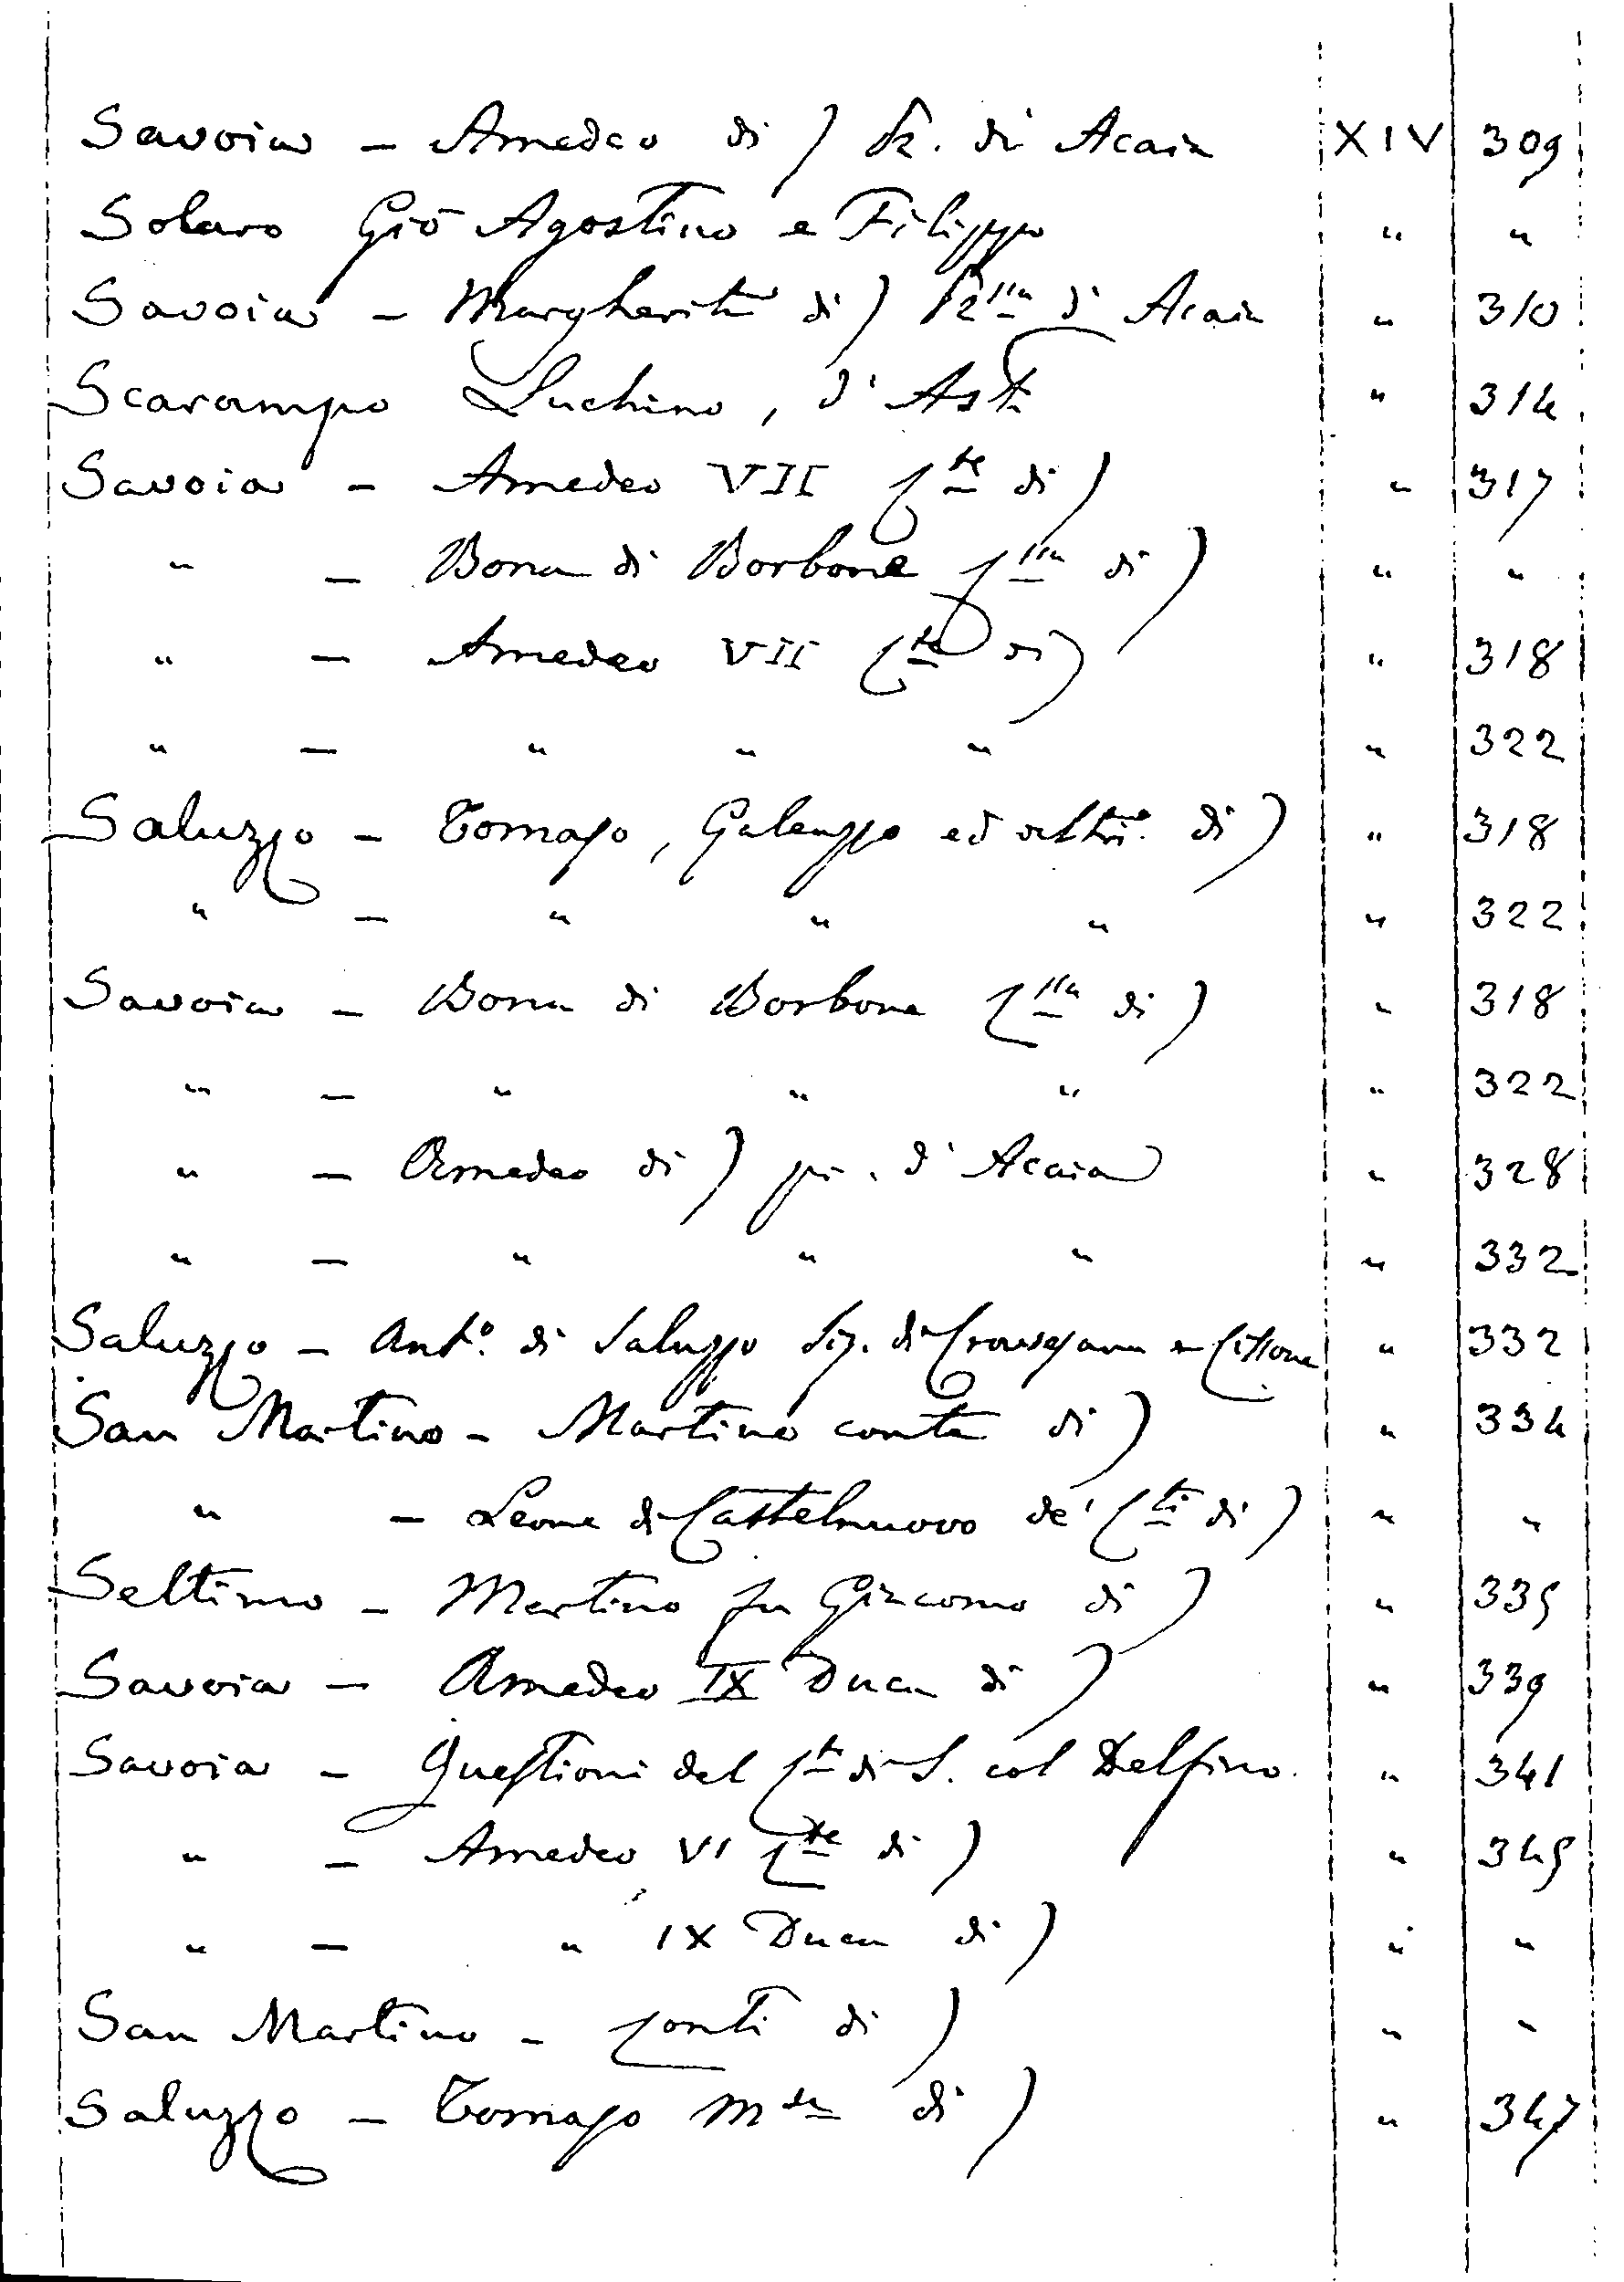 Savoia – Amedeo di ) Pr. di Acaia XIV 309
Solaro Gio Agostino e Filippo " "
Savoia – Margherita di ) Pr.lla d' Acaia " 310
Scarampo Luchino, d' Asti " 314
Savoia – Amedeo VII C.te di ) " 317
" – Bona di Borbone C.lla di ) " "
" – Amedeo VII C.te di ) " 318
" – " " " " 322
Saluzzo – Tomaso, Galeazzo ed altri di ) " 318
" – " " " " 322
Savoia – Bona di Borbone C.lla di ) " 318
" – " " " " 322
" – Amedeo di ) pr. d' Acaia " 328
" – " " " " 332
Saluzzo – Ant.o di Saluzzo Sig. di e Cissone " 332
San Martino – Martino conte di ) " 334
" – Leone di Castelnuovo de' C.ti di ) " "
Settimo – Martino fu Giacomo di ) " 335
Savoia – Amedeo IX Duca di ) " 339
Savoia – Questioni del C.te di S. col Delfino. " 341
" – Amedeo VI C.te di ) " 345
" – " IX Duca di ) " "
San Martino – Conti di ) " "
Saluzzo – Tomaso M.se di ) " 347